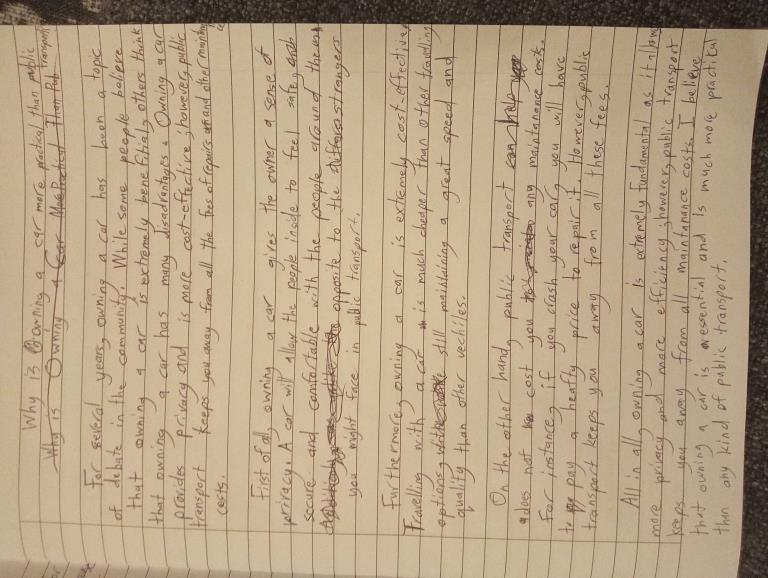 Why is owning a car more practical than public transport
Why is Owning a Car More Practical Than Pub
For several years, owning a car has been a topic
of debate in the community. While some people believe
that owning a car is extremely beneficial, others think
that owning a car has many disadvantages. Owning a car
provides privacy and is more cost-effective; however, public
transport keeps you away from all the fees of repairs and other maintin
costs.
First of all, owning a car gives the owner a sense of
privacy. A car will allow the people inside to feel safe, and
secure and comfortable with the people around them
opposite to the strangers
you might face in public transport.
Furthermore, owning a car is extremely cost-effective,
Travelling with a car is much cheaper than other travelling
options, still maintaining a great speed and
quality than other vechiles.
On the other hand, public transport can help you
does not cost you any maintanance costs.
For instance, if you crash your car, you will have
to pay a heafty price to repair it. However, public
transport keeps you away from all these fees.
All in all, owning a car is extremely fundamental as it allows
more privacy and more efficiency; however, public transport
keeps you away from all maintanance costs. I believe
that owning a car is essential and is much more practical
than any kind of public transport.